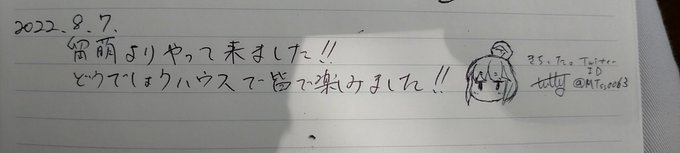 2022.8.7.
留萌よりやって来ました!!
どうでしょうハウスで皆で楽しみました!!
Twitter
ID